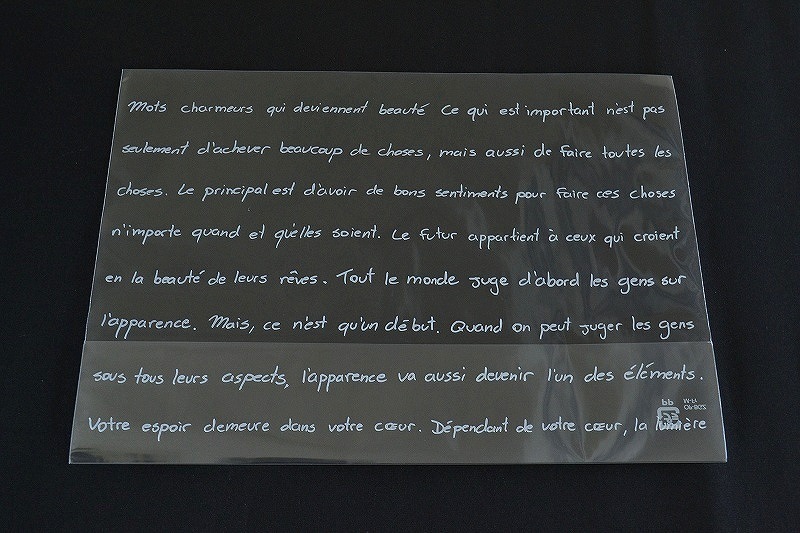 Mots charmeurs qui deviennent beauté Ce qui est important n'est pas
seulement d'achever beaucoup de choses, mais aussi de faire toutes les
choses. Le principal est d'avoir de bons sentiments pour faire ces choses
n'importe quand et qu'elles soient. Le futur appartient à ceux qui croient
en la beauté de leurs rêves. Tout le monde juge d'abord les gens sur
l'apparence. Mais, ce n'est qu'un début. Quand on peut juger les gens
sous tous leurs aspects, l'apparence va aussi devenir l'un des éléments.
Votre espoir demeure dans votre cœur. Dépendant de votre cœur, la lumière